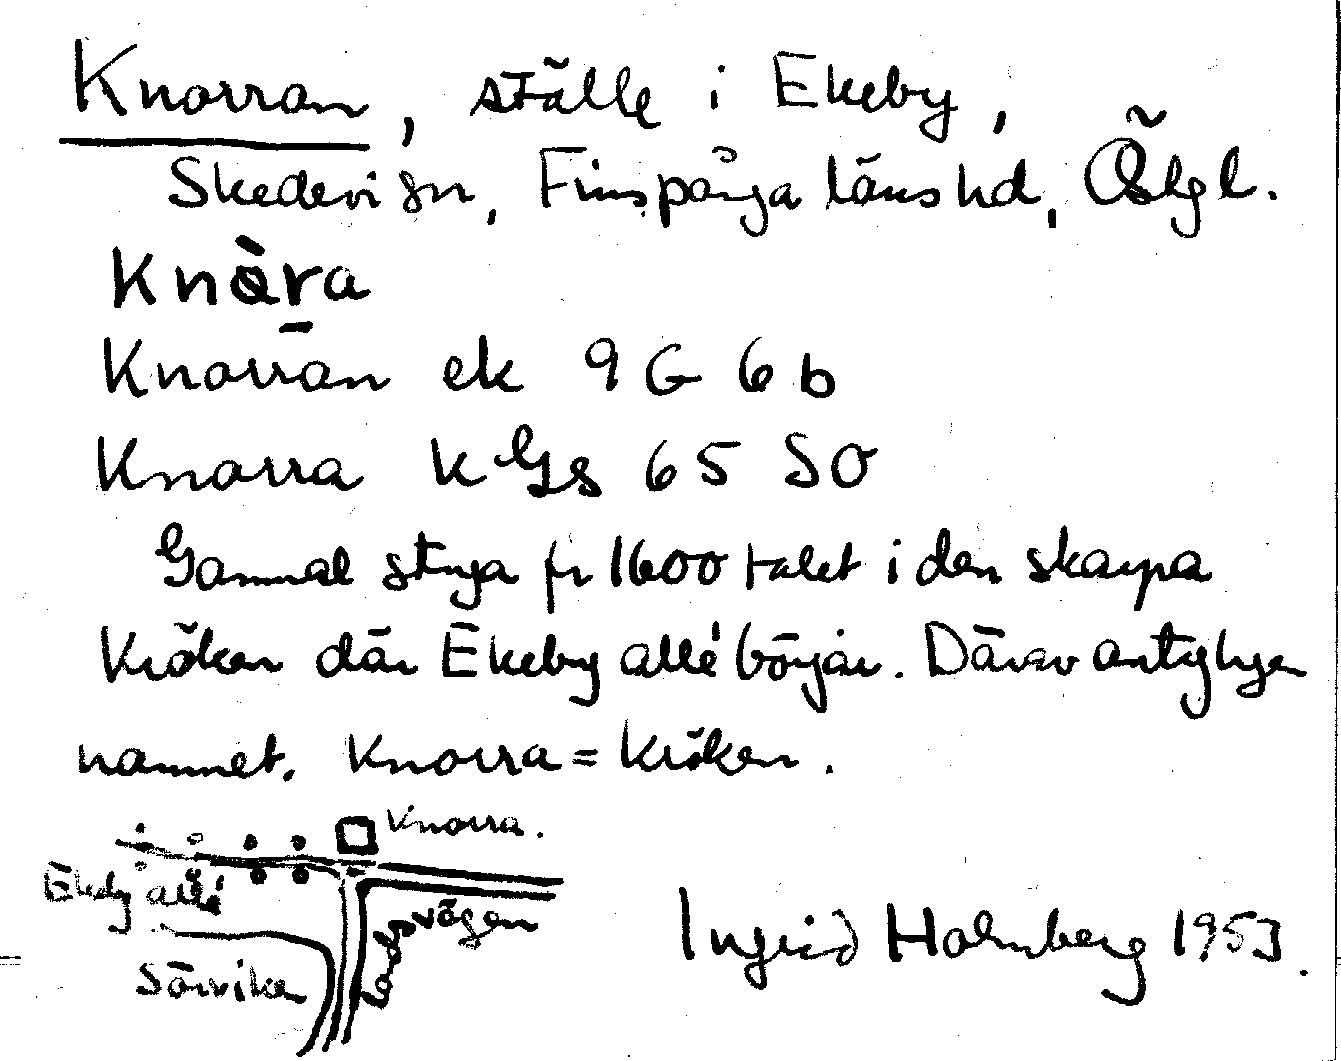 Knorran, ställe i Ekeby,
Skedevi sn, Finspånga läns hd, Östgl.
Knàra
Knorran ek 9G 6b
Knorra k Gs 65 SO
Gammal stuga fr 1600 talet i den skarpa
kröken där Ekeby allé börjar. Därav antagligen
namnet. Knorra = kröken.
Knorra.
Ekeby allé
vägen
Sörviken
Ingrid Holmberg 1953.